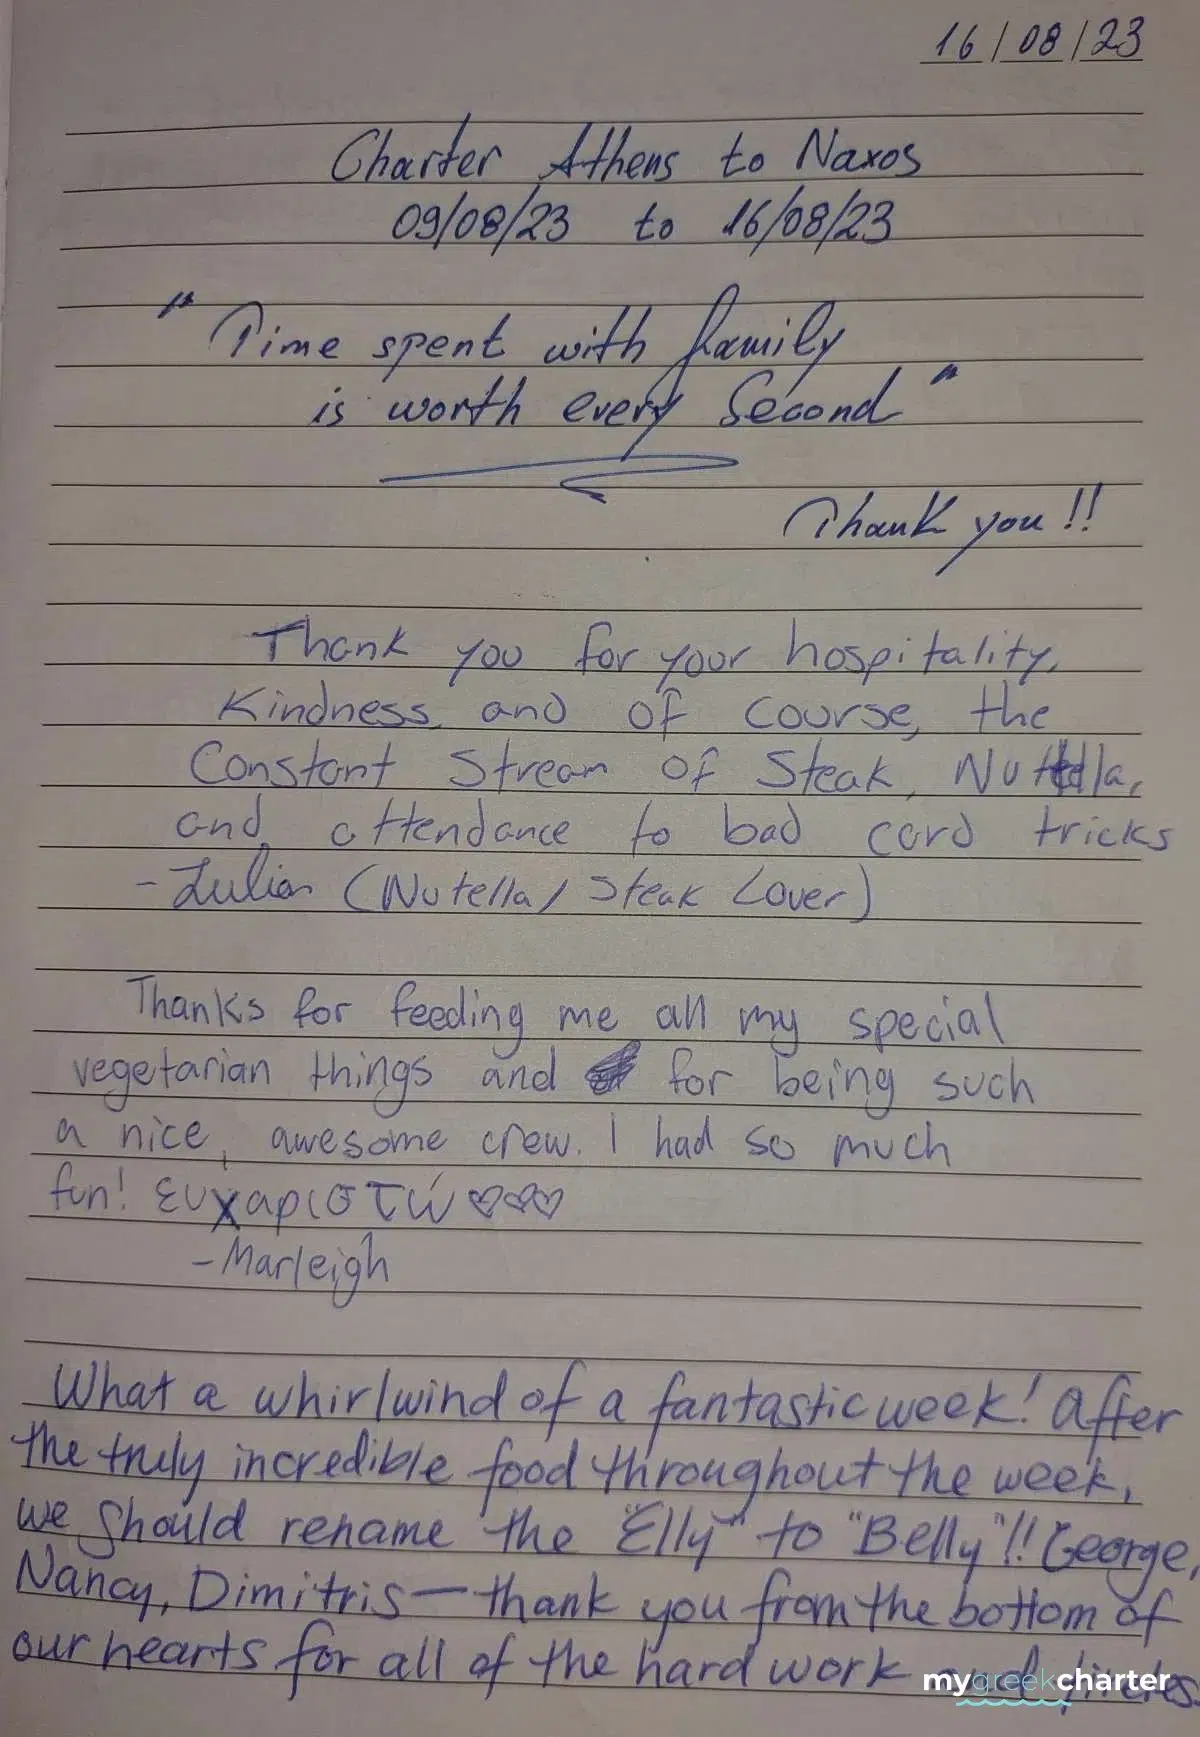 16/08/23
Charter Athens to Naxos
09/08/23 to 16/08/23
"Time spent with family
is worth every Second"
Thank you!!
Thank you for your hospitality,
Kindness, and of course, the
Constant Stream of Steak, Nutella,
and attendance to bad card tricks
- Julian (Nutella/ Steak Lover)
Thanks for feeding me all my special
vegetarian things and for being such
a nice, awesome crew. I had so much
fun! ευχαριστώ ♡♡♡
- Marleigh
What a whirlwind of a fantastic week! After
the truly incredible food throughout the week,
we should rename the "Elly" to "Belly"!! George,
Nancy, Dimitris — thank you from the bottom of
our hearts for all of the hard work and
mygreekcharter